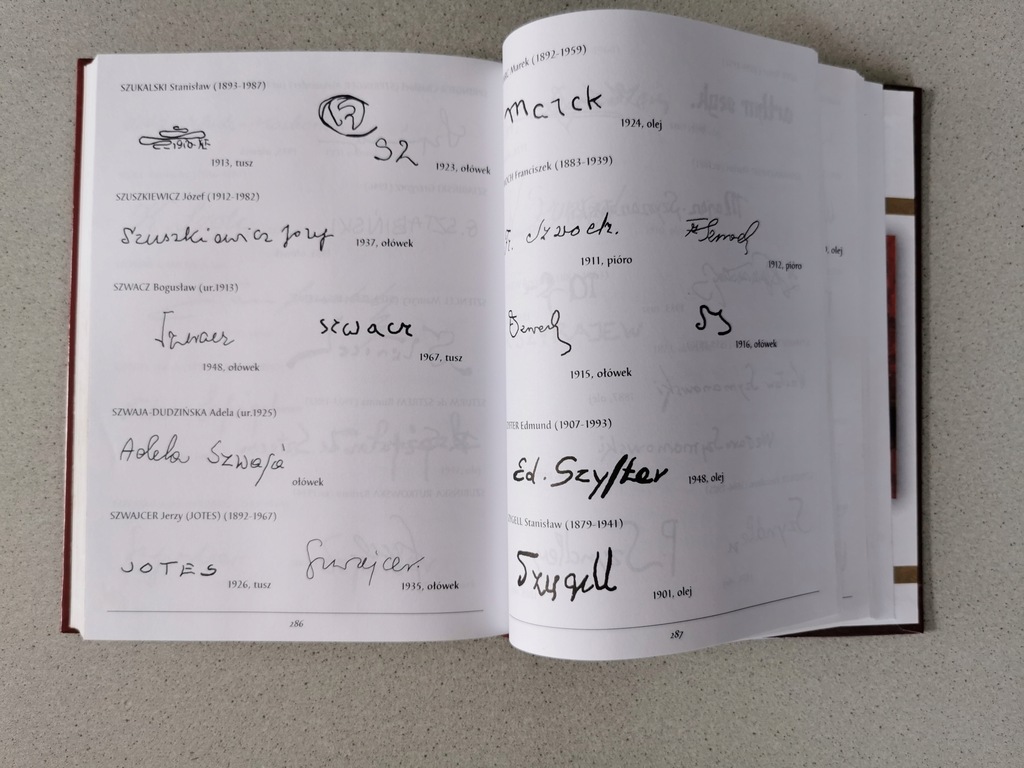 SZUKALSKI Stanisław (1893-1987)
1913, tusz
SZ
1923, ołówek
SZUSZKIEWICZ Józef (1912-1982)
Szuszkiewicz Józef
1937, ołówek
SZWACZ Bogusław (ur.1913)
Szwacz
1948, ołówek
szwacz
1967, tusz
SZWAJA-DUDZIŃSKA Adela (ur.1925)
Adela Szwaja
ołówek
SZWAJCER Jerzy (JOTES) (1892-1967)
JOTES
1926, tusz
Szwajcer.
1935, ołówek
286
Marek (1892-1959)
Marek
1924, olej
OCH Franciszek (1883-1939)
Szwoch.
1911, pióro
1912, pióro
1915, ołówek
1916, ołówek
FTER Edmund (1907-1993)
Ed. Szyfter
1948, olej
GELL Stanisław (1879-1941)
Szygell
1901, olej
287